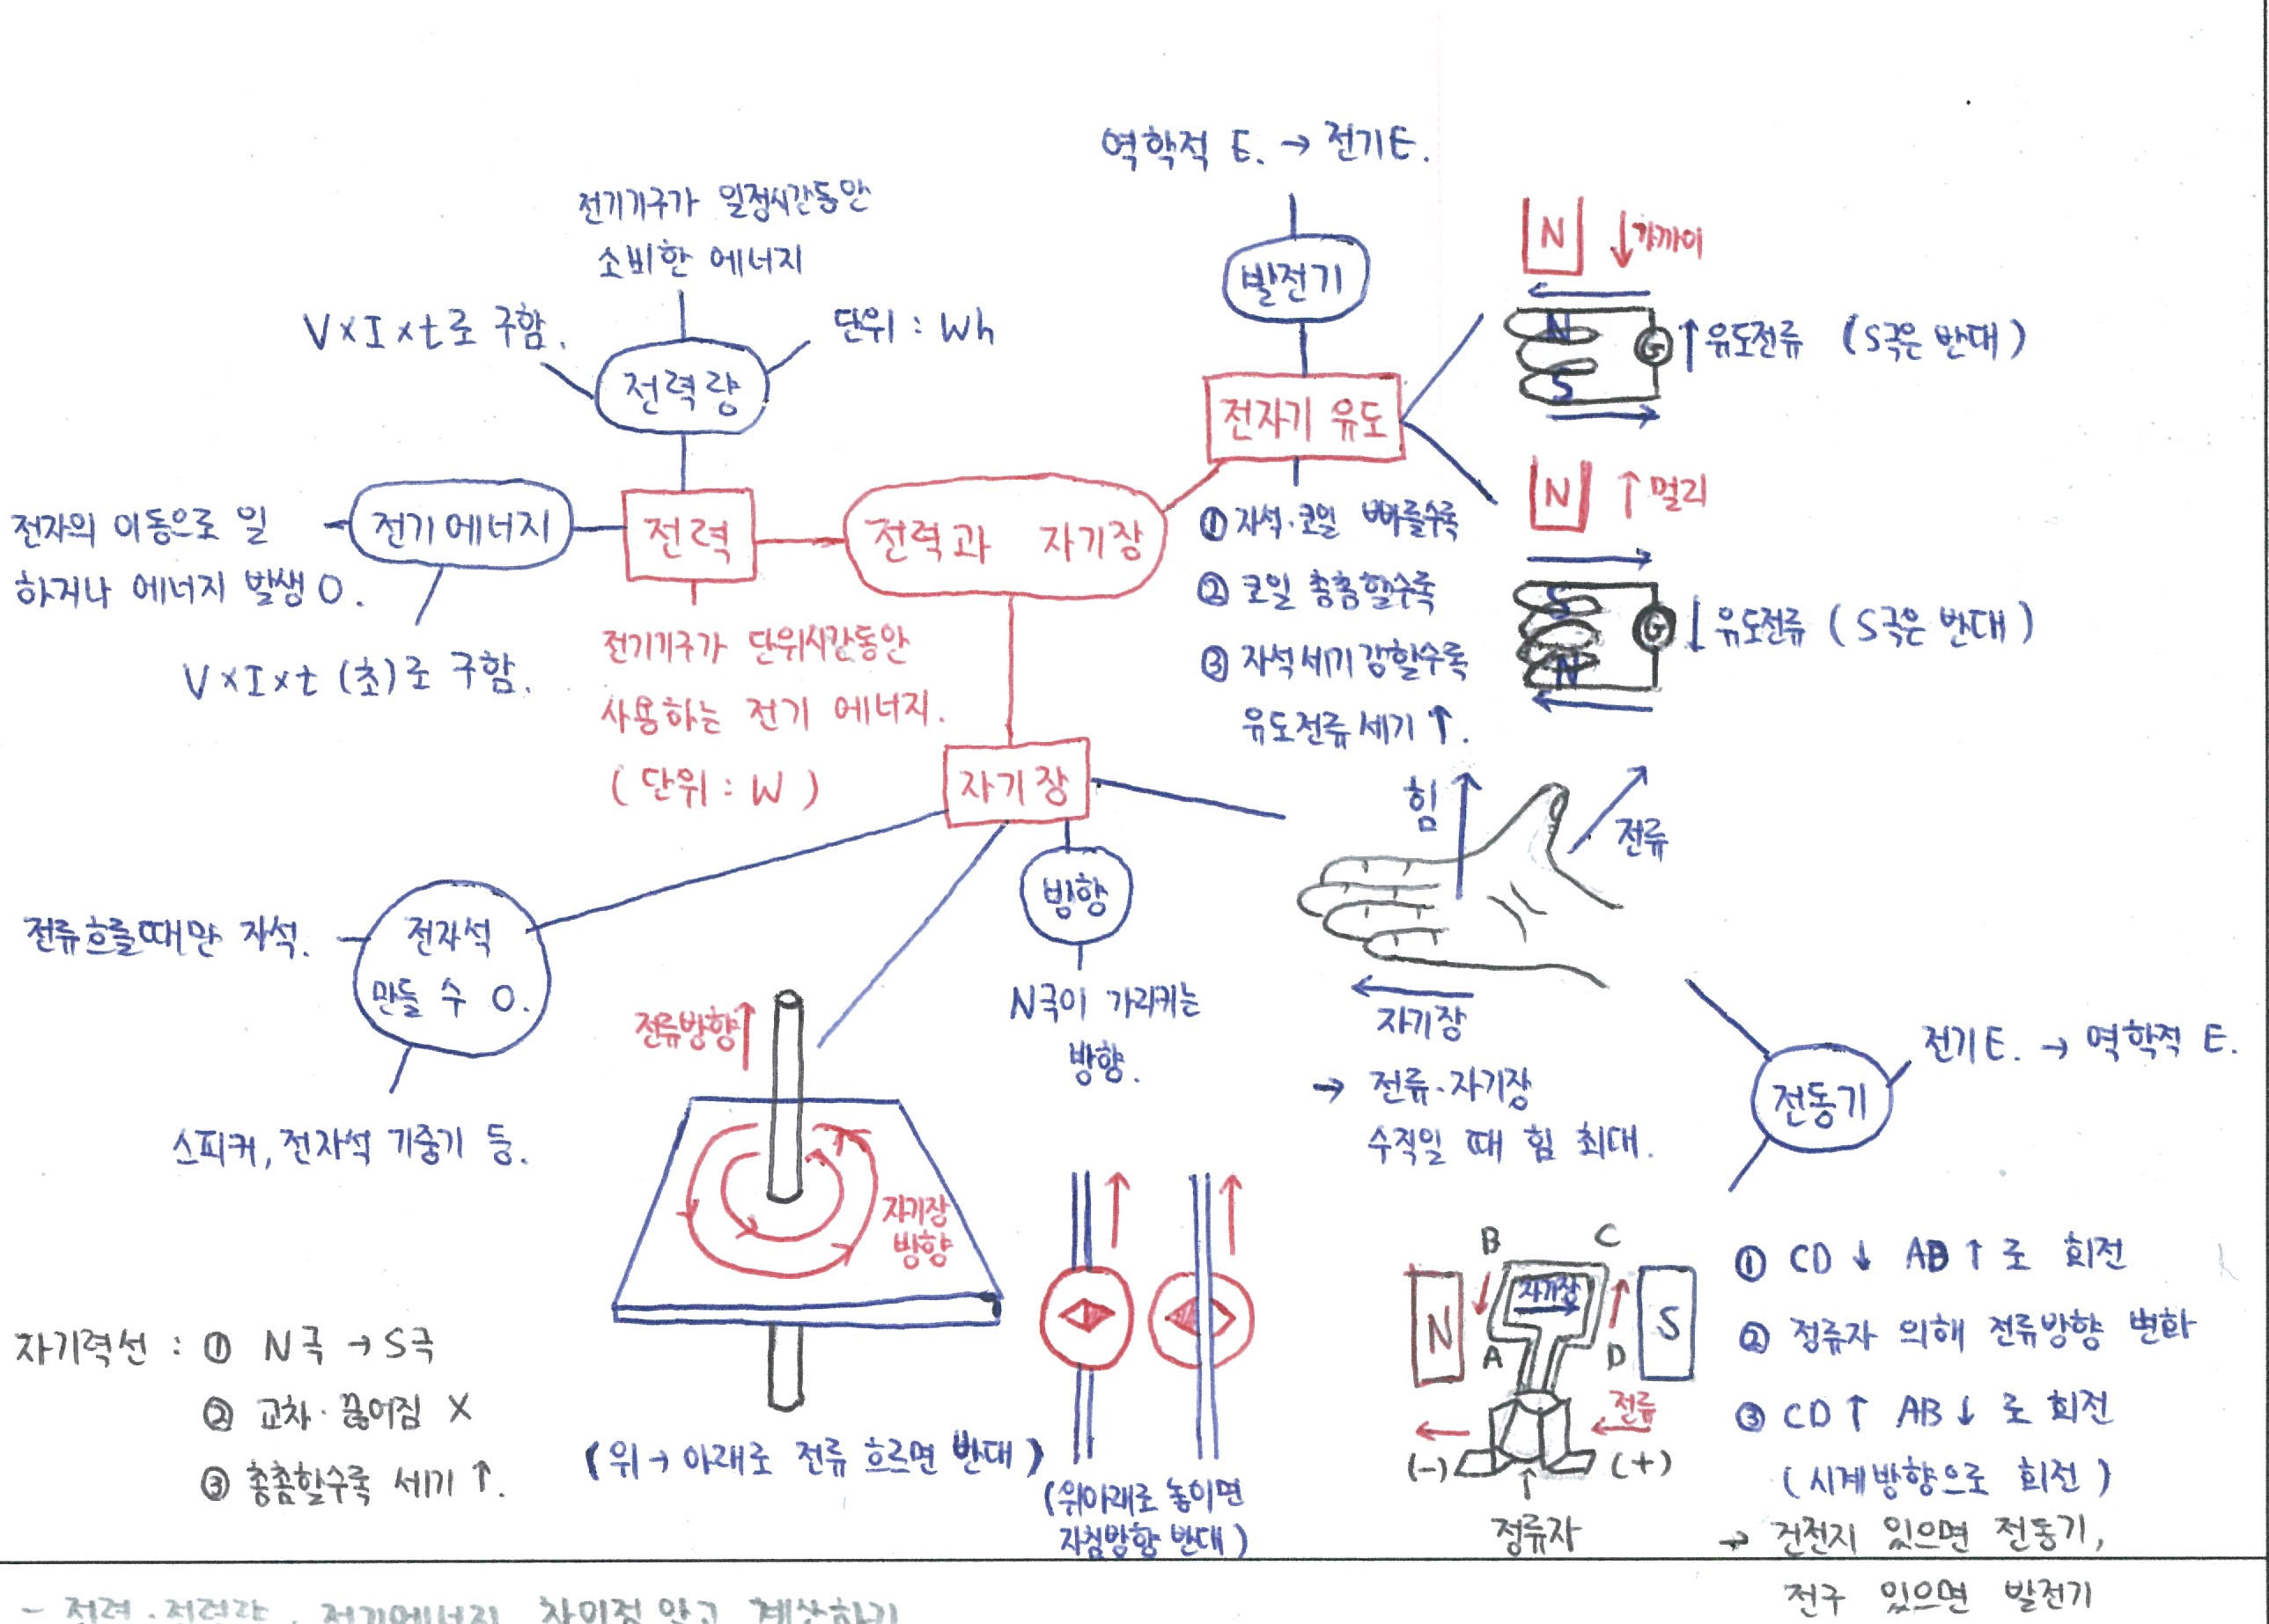 역학적 E. → 전기E.
발전기
전자기 유도
① 자석·코일 빠를수록
② 코일 촘촘할수록
③ 자석세기 강할수록
유도전류 세기 ↑.
N ↓가까이
N
S
G ↑유도전류 (S극은 반대)
N ↑멀리
S
N
G ↓유도전류 (S극은 반대)
전기기구가 일정시간동안
소비한 에너지
V×I×t로 구함.
단위 : Wh
전력량
전자의 이동으로 일
하거나 에너지 발생 O.
전기에너지
V×I×t (초)로 구함.
전력
전기기구가 단위시간동안
사용하는 전기 에너지.
(단위 : W)
전력과 자기장
자기장
방향
N극이 가리키는
방향.
힘
전류
자기장
→ 전류·자기장
수직일 때 힘 최대.
전류흐를때만 자석.
전자석
만들 수 O.
스피커, 전자석 기중기 등.
전류방향↑
자기장
방향
(위→아래로 전류 흐르면 반대)
(위아래로 놓이면
자침방향 반대)
자기력선 : ① N극 → S극
② 교차·끊어짐 X
③ 촘촘할수록 세기 ↑.
전동기
전기E. → 역학적 E.
B C
자기장
N S
A D
전류
(-) (+)
정류자
① CD ↓ AB ↑ 로 회전
② 정류자 의해 전류방향 변화
③ CD ↑ AB ↓ 로 회전
(시계방향으로 회전)
→ 건전지 있으면 전동기,
전구 있으면 발전기
- 전력·전력량, 전기에너지 차이점 알고 계산하기